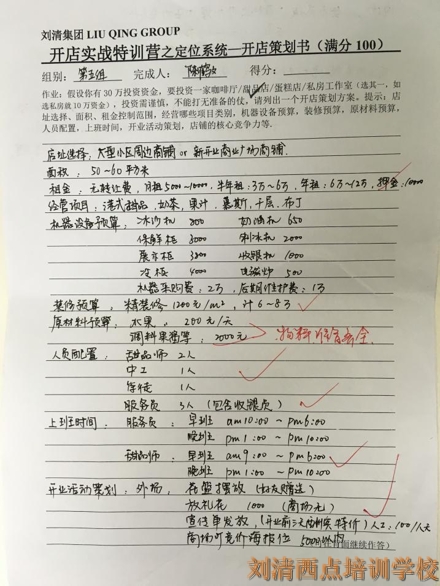 刘清集团 LIU QING GROUP
开店实战特训营之定位系统—开店策划书（满分 100）
组别：第五组 完成人： 得分：
作业：假设你有 30 万投资资金，要投资一家咖啡厅/甜品店/蛋糕店/私房工作室（选其一，如
选私房就 10 万资金），投资需谨慎，不能打无准备的仗，请列出一个开店策划方案，提示：店
址选择、面积、租金控制范围，经营哪些项目类别，机器设备预算，装修预算，原材料预算，
人员配置，上班时间，开业活动策划，店铺的核心竞争力等.
店址选择：大型小区周边商铺 or 新开业商业广场商铺.
面积：50～60平方米
租金：无转让费，月租5000～10000，半年租：3万～6万，年租：6万～12万，押金：10000
经营项目：港式甜品、奶茶、果汁、慕斯、千层、布丁
机器设备预算：冰沙机 800 切油机 650
保鲜柜 3000 制冰机 2000
展示柜 3200 收银机 1000
冷柜 4000 电磁炉 500
机器采购费：2万，后期维护费：1万
装修预算：精装修 1200元/m²，计 6～8万
原材料预算：水果，200元/天
调料果酱等，2000元 物料准备齐全
人员配置：甜品师 2人
中工 1人
学徒 1人
服务员 3人（包含收银员）
上班时间：服务员：早班 am10:00～pm6:00
晚班 pm1:00～pm10:00
甜品师：早班 am9:00～pm6:00
晚班 pm1:00～pm10:00
开业活动策划：外场，花篮摆放（好友赠送）
放礼花 1000（商场元）
宣传单发放，（开业前三天 特价）人工：100/人天
商场 竞价海报位 5000以内
继续作答）
刘清西点培训学校